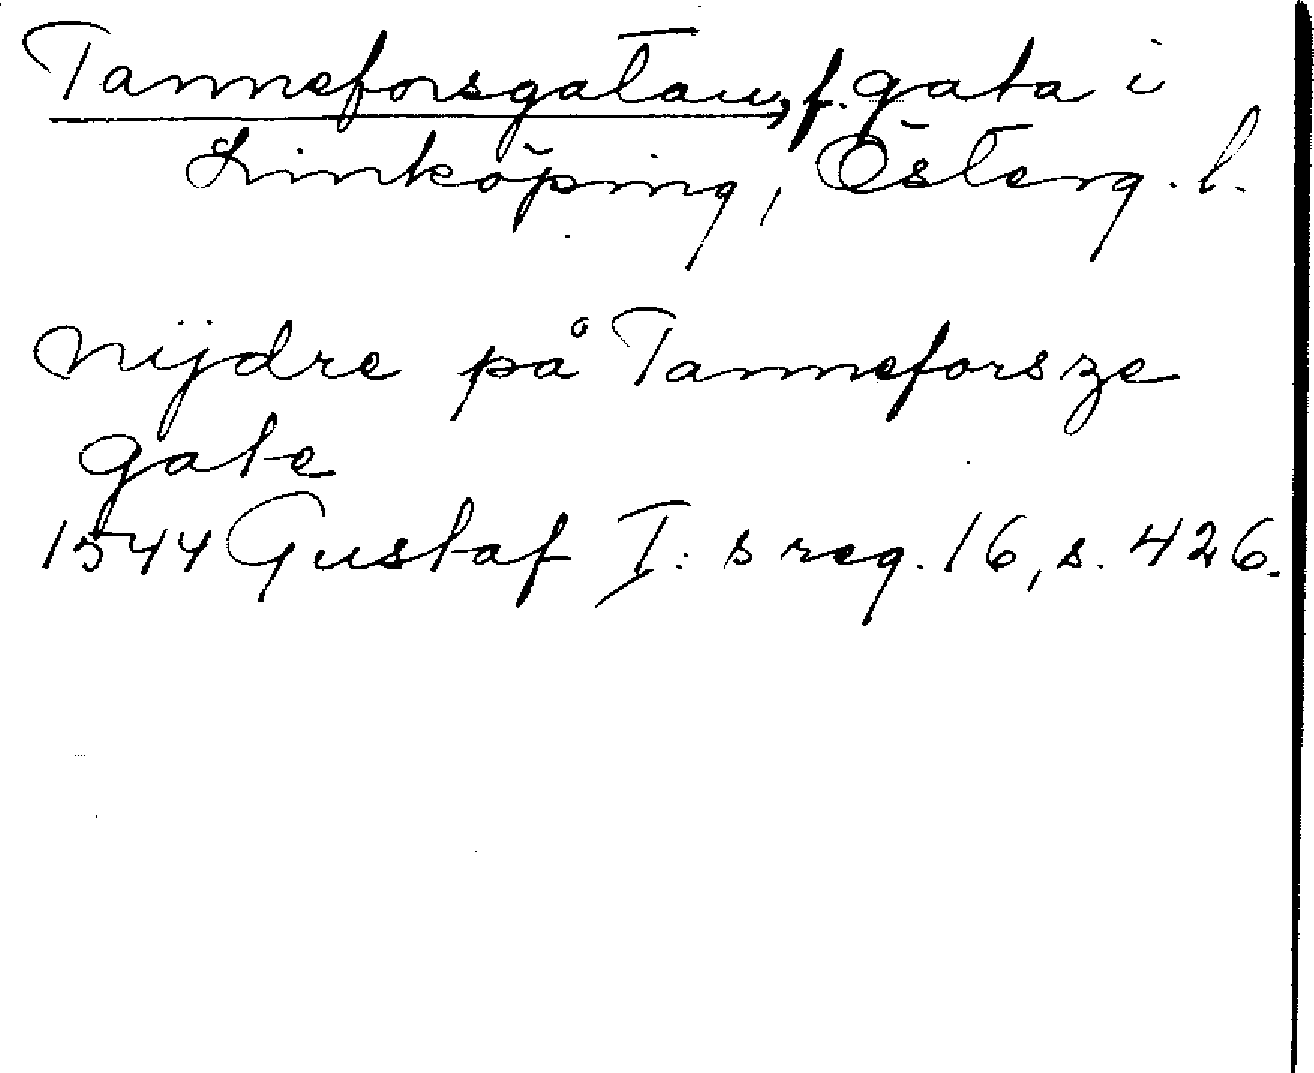 Tanneforsgatan, f. gata i
Linköping, Österg. l.
nijdre på Tanneforsze
gate
1544 Gustaf I:s reg. 16, s. 426.